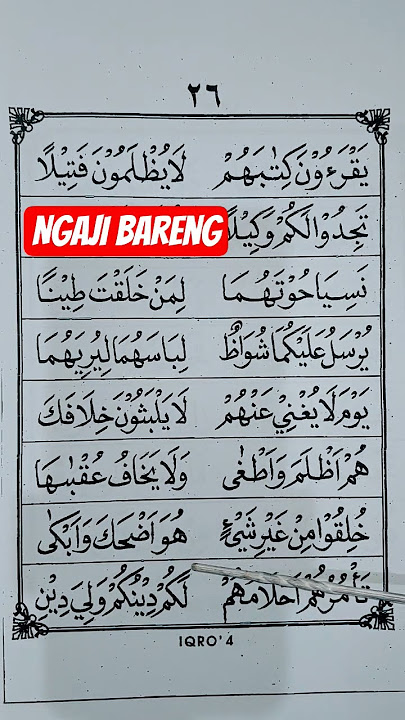 ٢٦
يَقْرَءُوْنَ كِتٰبَهُمْ لَا يُظْلَمُوْنَ فَتِيْلًا
NGAJI BARENG
تَجِدُوْا لَكُمْ وَكِيْلًا
نَسِيَا حُوْتَهُمَا لِمَنْ خَلَقْتَ طِيْنًا
يُرْسَلُ عَلَيْكُمَا شُوَاظٌ لِبَاسَهُمَا لِيُرِيَهُمَا
يَوْمَ لَا يُغْنِيْ عَنْهُمْ لَا يَلْبَثُوْنَ خِلَافَكَ
هُمْ اَظْلَمَ وَاَطْغٰى وَلَا يَخَافُ عُقْبٰىهَا
خُلِقُوْا مِنْ غَيْرِ شَيْءٍ هُوَ اَضْحَكَ وَاَبْكٰى
تَأْمُرُهُمْ اَحْلَامُهُمْ لَكُمْ دِيْنُكُمْ وَلِيَ دِيْنِ
IQRO' 4